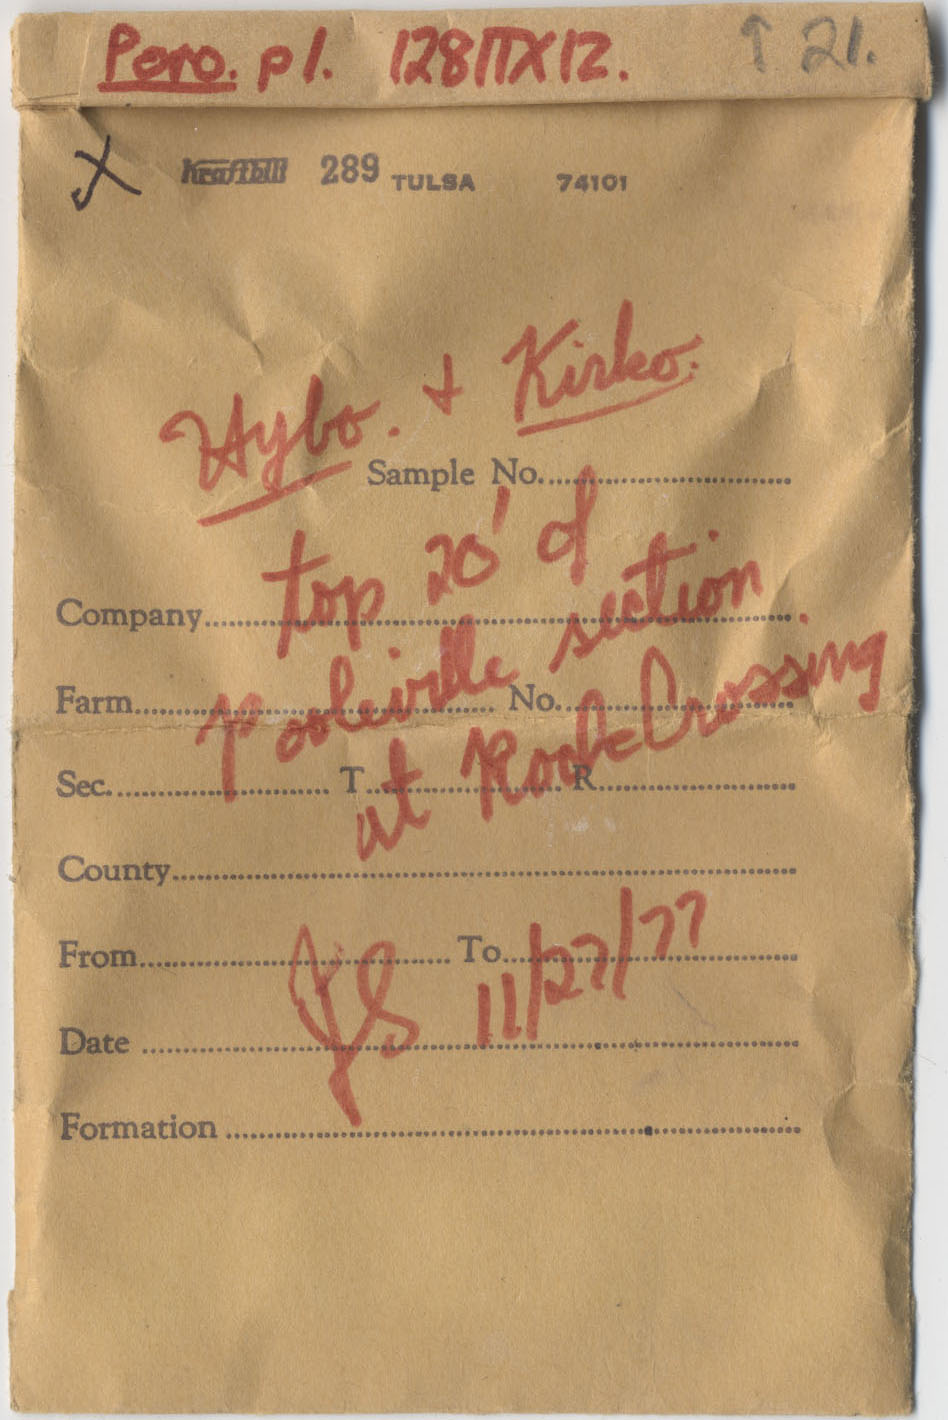 Poro. pl. 128ΠX12. ↑ 21.
X Kraftbilt 289 TULSA 74101
Hybo. + Kirko.
Sample No.
top 20' of
Company
Pooleville section
Farm No.
at Rock Crossing
Sec. T. R.
County
From To
JS 11/27/77
Date
Formation